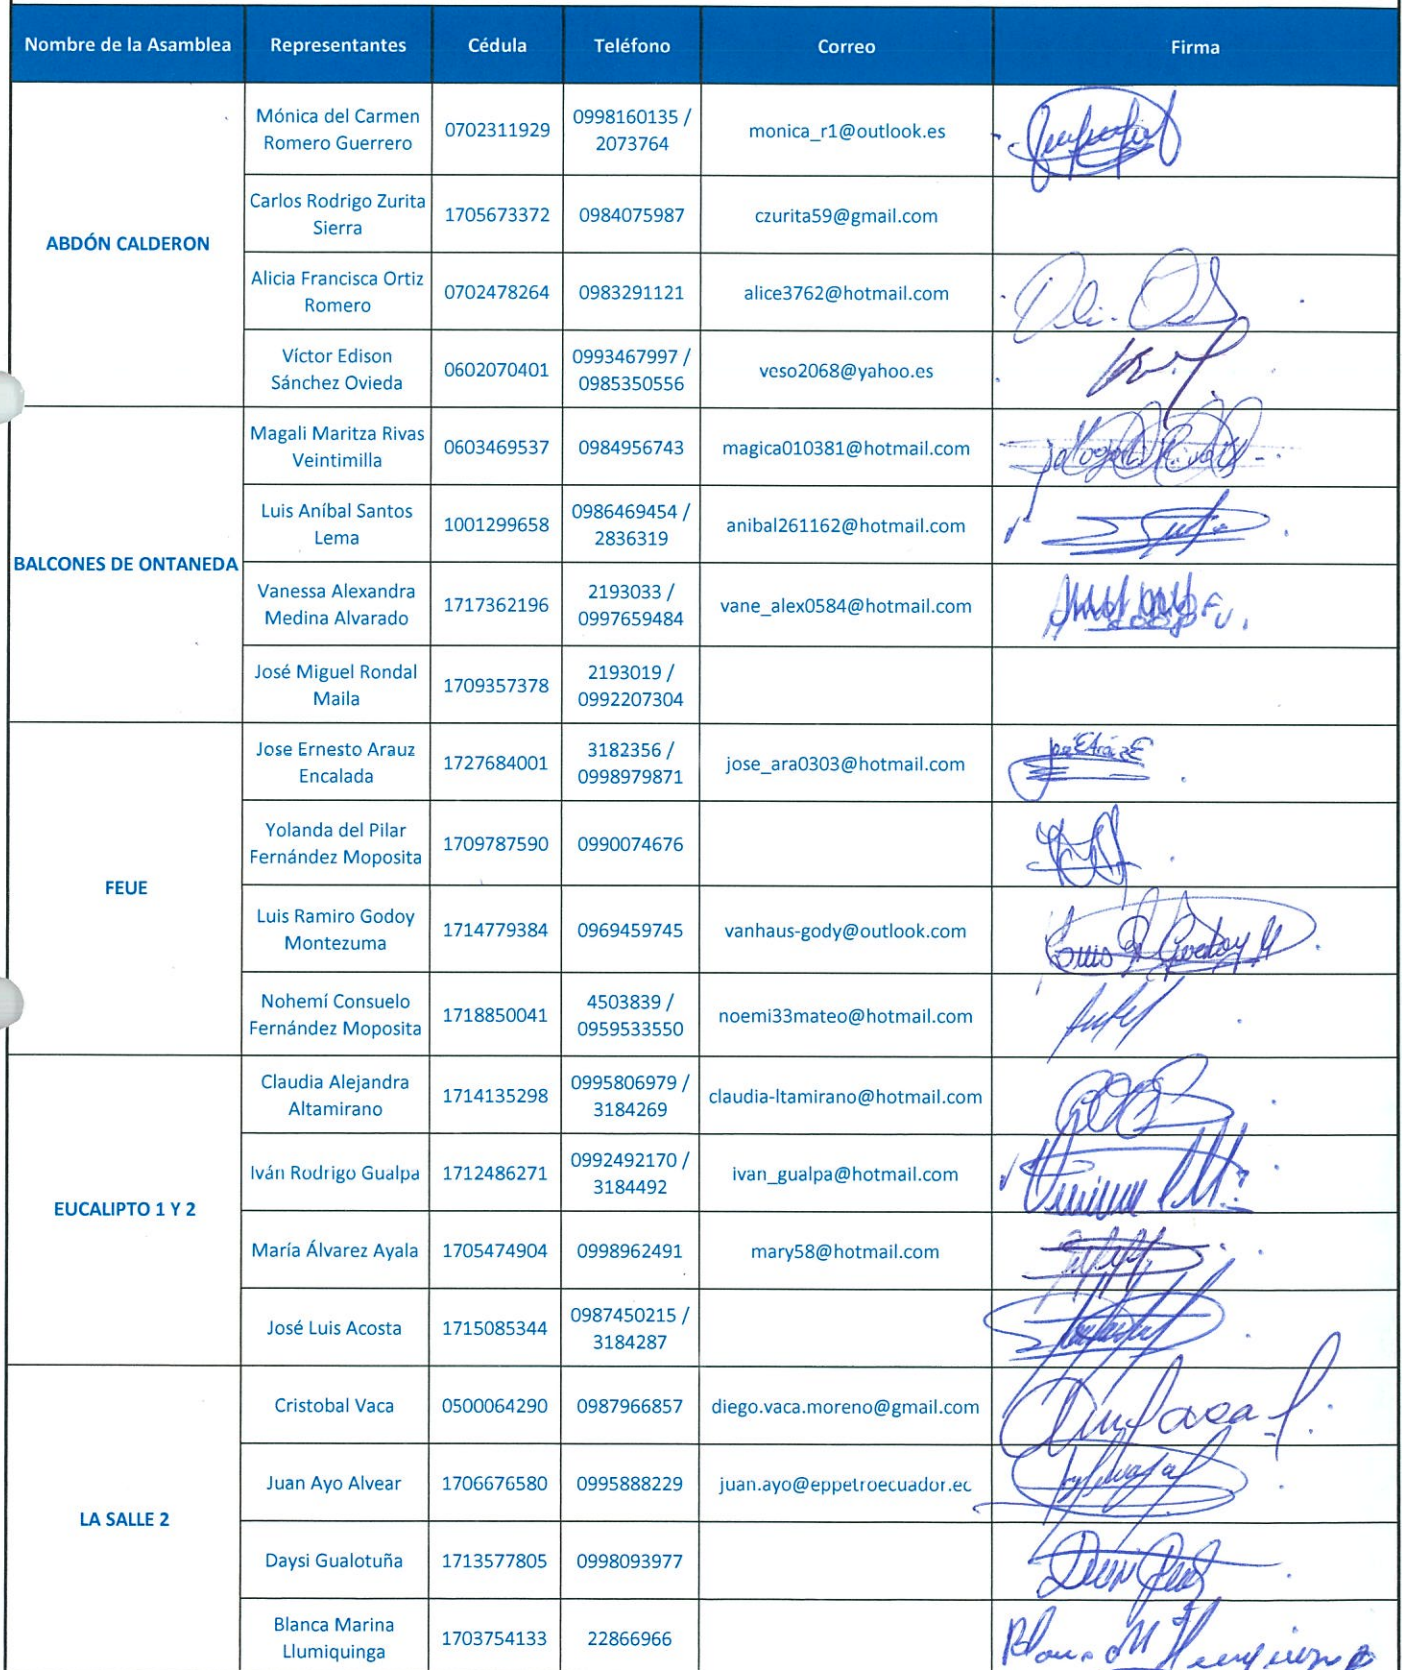 Nombre de la Asamblea Representantes Cédula Teléfono Correo Firma
ABDÓN CALDERON
Mónica del Carmen Romero Guerrero 0702311929 0998160135 / 2073764 monica_r1@outlook.es
Carlos Rodrigo Zurita Sierra 1705673372 0984075987 czurita59@gmail.com
Alicia Francisca Ortiz Romero 0702478264 0983291121 alice3762@hotmail.com
Víctor Edison Sánchez Ovieda 0602070401 0993467997 / 0985350556 veso2068@yahoo.es
BALCONES DE ONTANEDA
Magali Maritza Rivas Veintimilla 0603469537 0984956743 magica010381@hotmail.com
Luis Aníbal Santos Lema 1001299658 0986469454 / 2836319 anibal261162@hotmail.com
Vanessa Alexandra Medina Alvarado 1717362196 2193033 / 0997659484 vane_alex0584@hotmail.com
José Miguel Rondal Maila 1709357378 2193019 / 0992207304
FEUE
Jose Ernesto Arauz Encalada 1727684001 3182356 / 0998979871 jose_ara0303@hotmail.com
Yolanda del Pilar Fernández Moposita 1709787590 0990074676
Luis Ramiro Godoy Montezuma 1714779384 0969459745 vanhaus-gody@outlook.com
Nohemí Consuelo Fernández Moposita 1718850041 4503839 / 0959533550 noemi33mateo@hotmail.com
EUCALIPTO 1 Y 2
Claudia Alejandra Altamirano 1714135298 0995806979 / 3184269 claudia-ltamirano@hotmail.com
Iván Rodrigo Gualpa 1712486271 0992492170 / 3184492 ivan_gualpa@hotmail.com
María Álvarez Ayala 1705474904 0998962491 mary58@hotmail.com
José Luis Acosta 1715085344 0987450215 / 3184287
LA SALLE 2
Cristobal Vaca 0500064290 0987966857 diego.vaca.moreno@gmail.com
Juan Ayo Alvear 1706676580 0995888229 juan.ayo@eppetroecuador.ec
Daysi Gualotuña 1713577805 0998093977
Blanca Marina Llumiquinga 1703754133 22866966